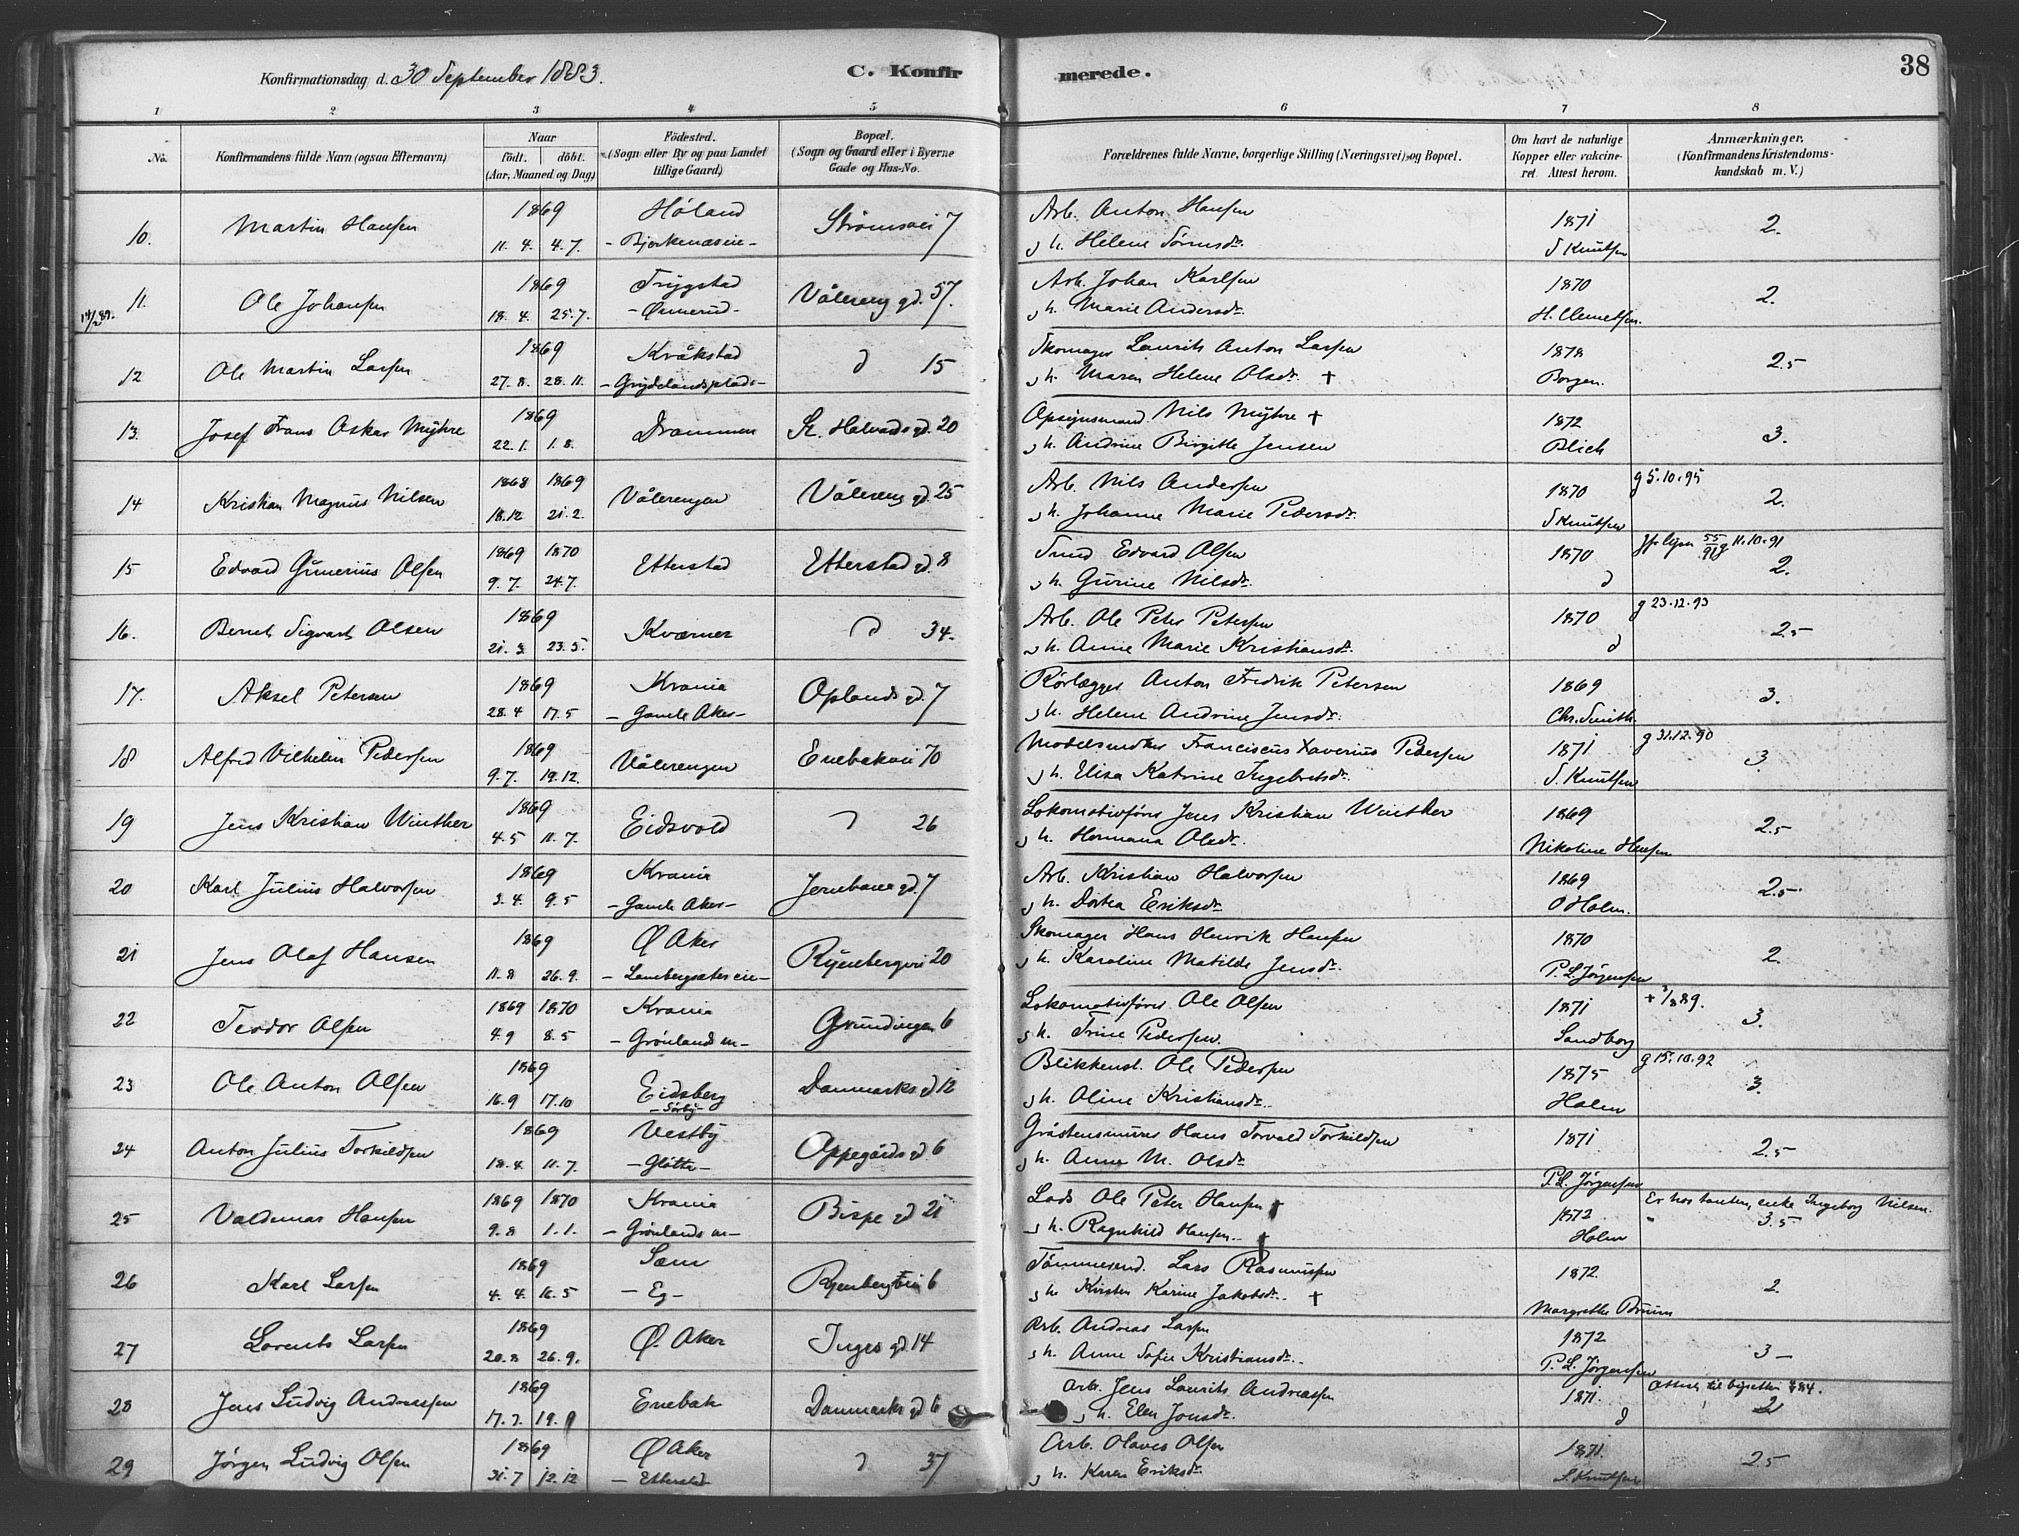 Konfirmationsdag d. 30 September 1883.
C. Konfirmerede.
38
1 2 3 4 5 6 7 8
No.
Konfirmandens fulde Navn (ogsaa Efternavn)
Naar
født. døbt.
(Aar, Maaned og Dag)
Fødested.
(Sogn eller By og paa Landet
tillige Gaard)
Bopæl.
(Sogn og Gaard eller i Byerne
Gade og Hus-No.
Forældrenes fulde Navne, borgerlige Stilling (Næringsvei) og Bopæl.
Om havt de naturlige
Kopper eller vakcine-
ret. Attest herom.
Anmærkninger.
(Konfirmandens Kristendoms-
kundskab m. V.)
1869 Høland Arb. Anton Hansen 1871
10. Martin Hansen Strømsvei 7 2.
11. 4. 4. 7. - Bjørkenæseie - H. Helene S. Knutsen
1869 Trygstad Arb. Johan Karlsen 1870
11. Ole Johansen Vålereng gd. 57. 2.
18. 4. 25. 7. H. Marie Andersdr. H. Clemetsen.
1869 Kråkstad Skomager Laurits Anton Larsen 1878
12 Ole Martin Larsen d 15 2.5
27. 8. 28. 11. - Grydelandsplads - H. Maren Helene Olsdr. + Borgen.
1869 Opsynsmand Nils Myhre + 1872
13. Josef Frans Oskar Myhre Drammen St. Halvards gd. 20 3.
22. 1. 1. 8. H. Andrine Birgitte Jensen Blich
1868 1869 Arb. Nils Andersen 1870 g 5.10.95
14 Kristian Magnus Nilsen Vålerengen Vålereng gd. 25 2.
18.12 21. 2. H. Johanne Marie Pedersdr. S Knutsen
1869 1870 Smed Edvard Olsen 1870 55/91 g 11.10.91
15 Edvard Gunerius Olsen Etterstad Etterstad gd. 8 2.
9. 7. 24.7. H. Gurine Nilsdr. d
1869 Arb. Ole Peter Petersen 1870 g 23.12.93
16. Bernt Sigvart Olsen Kværner d 34. 2.5
21. 3. 23. 5. H. Anne Marie Kristiansdr. d
1869 Krania Rørlægger Anton Fredrik Petersen 1869
17. Aksel Petersen Oplands gd. 7 3.
28. 4 17. 5 - Gamle Aker - H. Helene Andrine Jensdr. Chr. Smith.
1869 Modelsnedker Franciscus Xaverius Pedersen 1871 g 31.12.90
18 Alfred Vilhelm Pedersen Vålerengen Enebakvei 70 3.
9. 7. 19. 12. H. Elisa Katrine Ingebretsdr. S. Knutsen
1869 Lokomotivfører Jens Kristian Winther 1869
19 Jens Kristian Winther Eidsvold d 26 2.5
4. 5 11. 7. H. Hermana Olsdr. Nikoline Hansen
1869 Krania Arb. Kristian Halvorsen 1869
20 Karl Julius Halvorsen Jernbane gd. 7 2.5
3. 4. 9. 5 - Gamle Aker - H. Dortea Eriksdr. O Holm.
1869 Ø Aker Skomager Hans Henrik Hansen 1870
21 Jens Olaf Hansen Ryenbergvei 20 2.
11. 8 26. 9. H. Karoline Matilde Jensdr. P. L. Jørgensen
1869 1870 Krania Lokomotivfører Ole Olsen 1871
22 Teodor Olsen Grundingen 6 3.
4 9 8. 5 - Grønland m - H. Trine Pedersen. Sandborg
1869 Blikkensl. Ole Pedersen 1875 g 15.10.92
23 Ole Anton Olsen Eidsberg Danmarks gd 12 3.
16. 9 17. 10 - Sørby - H. Oline Kristiansdr. Holm
1869 Vestby Gråstensmurer Hans Torvald Torkildsen 1871
24 Anton Julius Torkildsen Oppegårds gd. 6 2.5
18. 4. 11. 7. H. Anne M. Olsdr. P. L. Jørgensen
1869 1870 Krania Lods Ole Peter Hansen + 1872 Er hos tanten, enke Ingeborg Nilsen.
25 Valdemar Hansen Bispe gd 21 3.5
9. 8 1. 1. - Grønlands m - H. Ragnhild Hansen + Holm
1869 Sæm Tømmermd. Lars Rasmussen 1872.
26 Karl Larsen Ryenbergvei 6 2.
4. 4. 16. 5 - Eg - H. Kirsten Karine Jakobsdr. + Margrethe
1869 Arb. Andreas Larsen 1872
27 Lorents Larsen Ø. Aker Inges gd. 14 3 -
20. 8 26. 9. H. Anne Sofie Kristiansdr. P. L. Jørgensen
1869 Arb. Jens Laurits Andreassen 1871.
28 Jens Ludvig Andreassen Enebak Danmarks gd 6 2
17. 7. 19. 9 H. Elen Jonsdr. d
1869 Ø Aker Arb. Olaves Olsen 1871.
29 Jørgen Ludvig Olsen d 37 25
31. 7 12. 12 - Etterstad H. Karen Eriksdr. S. Knutsen